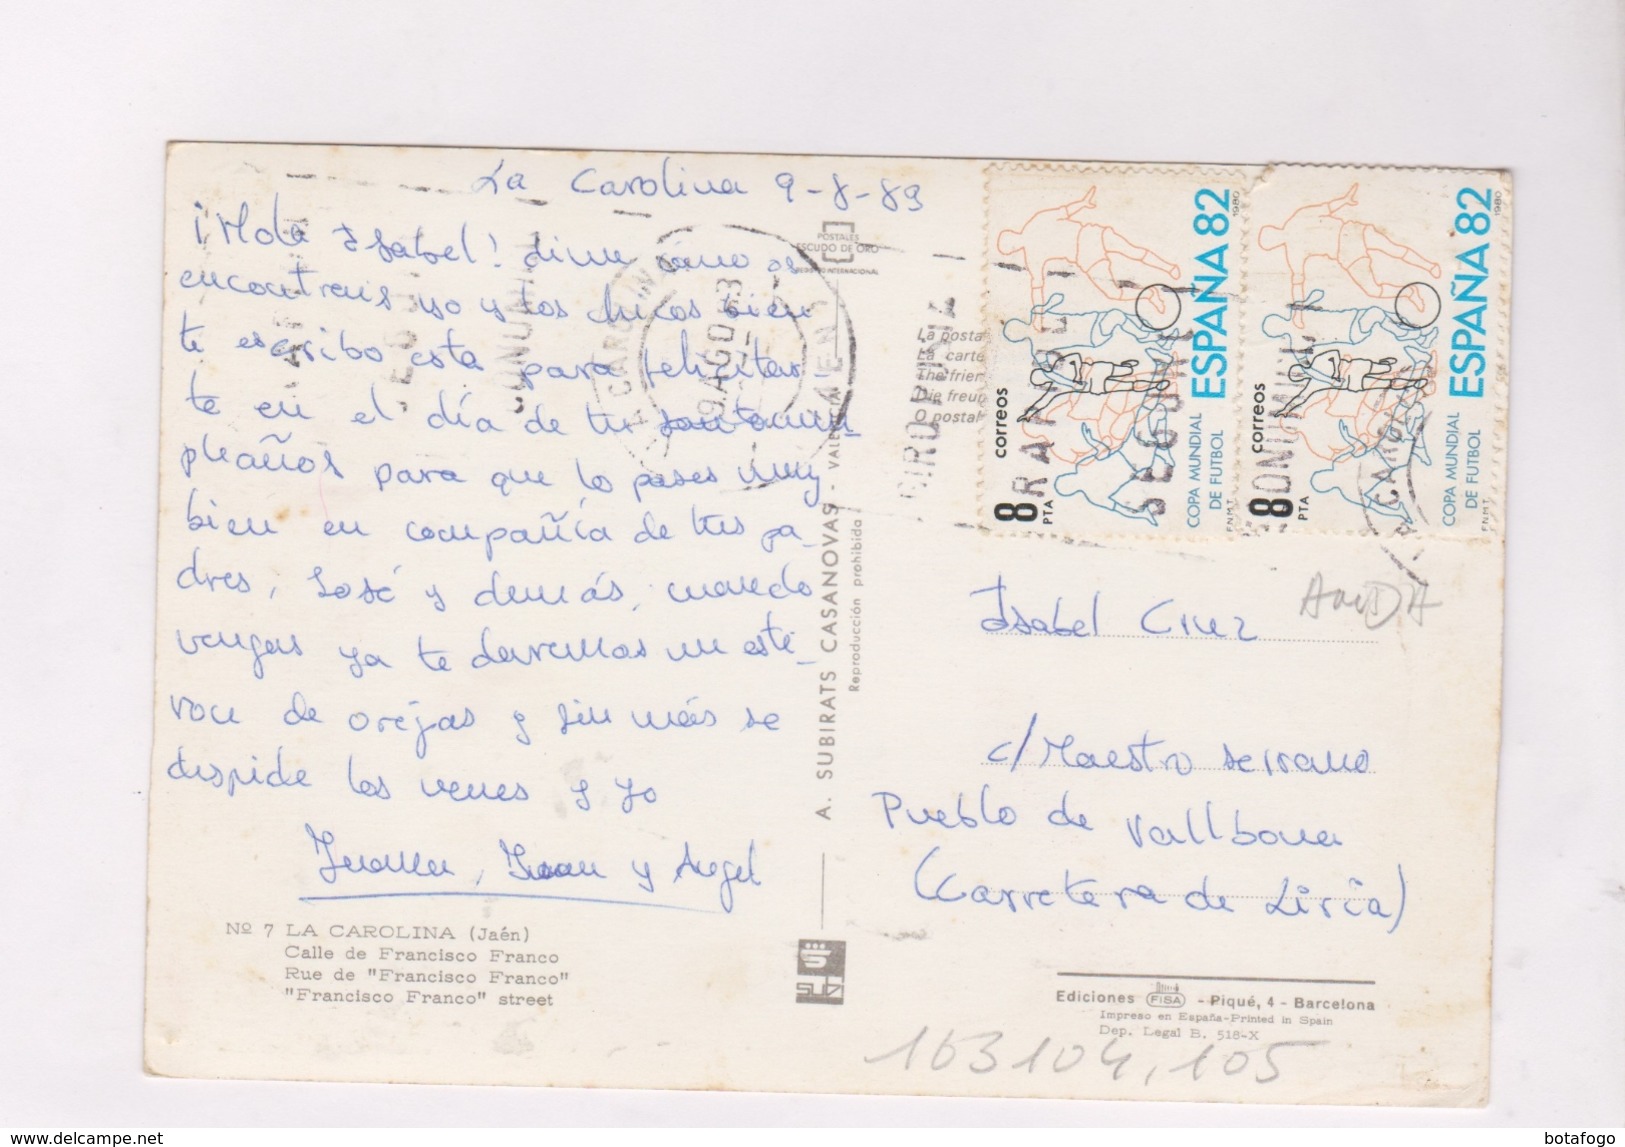 La Carolina 9-8-83
¡Hola Isabel! dime como os
encontreis yo y los chicos bien
te escribo esta para felicitar-
te en el día de tu cum-
pleaños para que lo pases muy
bien en compañía de tus pa-
dres, José y demás, cuando
vengas ya te daremos un esti-
ron de orejas y sin más se
despide los nenes y yo
Juana, Juan y Angel
Nº 7 LA CAROLINA (Jaén)
Calle de Francisco Franco
Rue de "Francisco Franco"
"Francisco Franco" street
POSTALES
ESCUDO DE ORO
A. SUBIRATS CASANOVAS - VALENCIA
Reproducción prohibida
SUBI
9 AGO 83
La posta
La carte
The frien
Die freun
O postal
8 PTA correos
COPA MUNDIAL DE FUTBOL
ESPAÑA 82
1980
F.N.M.T.
8 PTA correos
COPA MUNDIAL DE FUTBOL
ESPAÑA 82
1980
F.N.M.T.
Isabel Cruz
c/Maestro serrano
Pueblo de Vallbona
(Carretera de Liria)
Ediciones FISA - Piqué, 4 - Barcelona
Impreso en España-Printed in Spain
Dep. Legal B. 518-X
163104,105
www.delcampe.net
botafogo